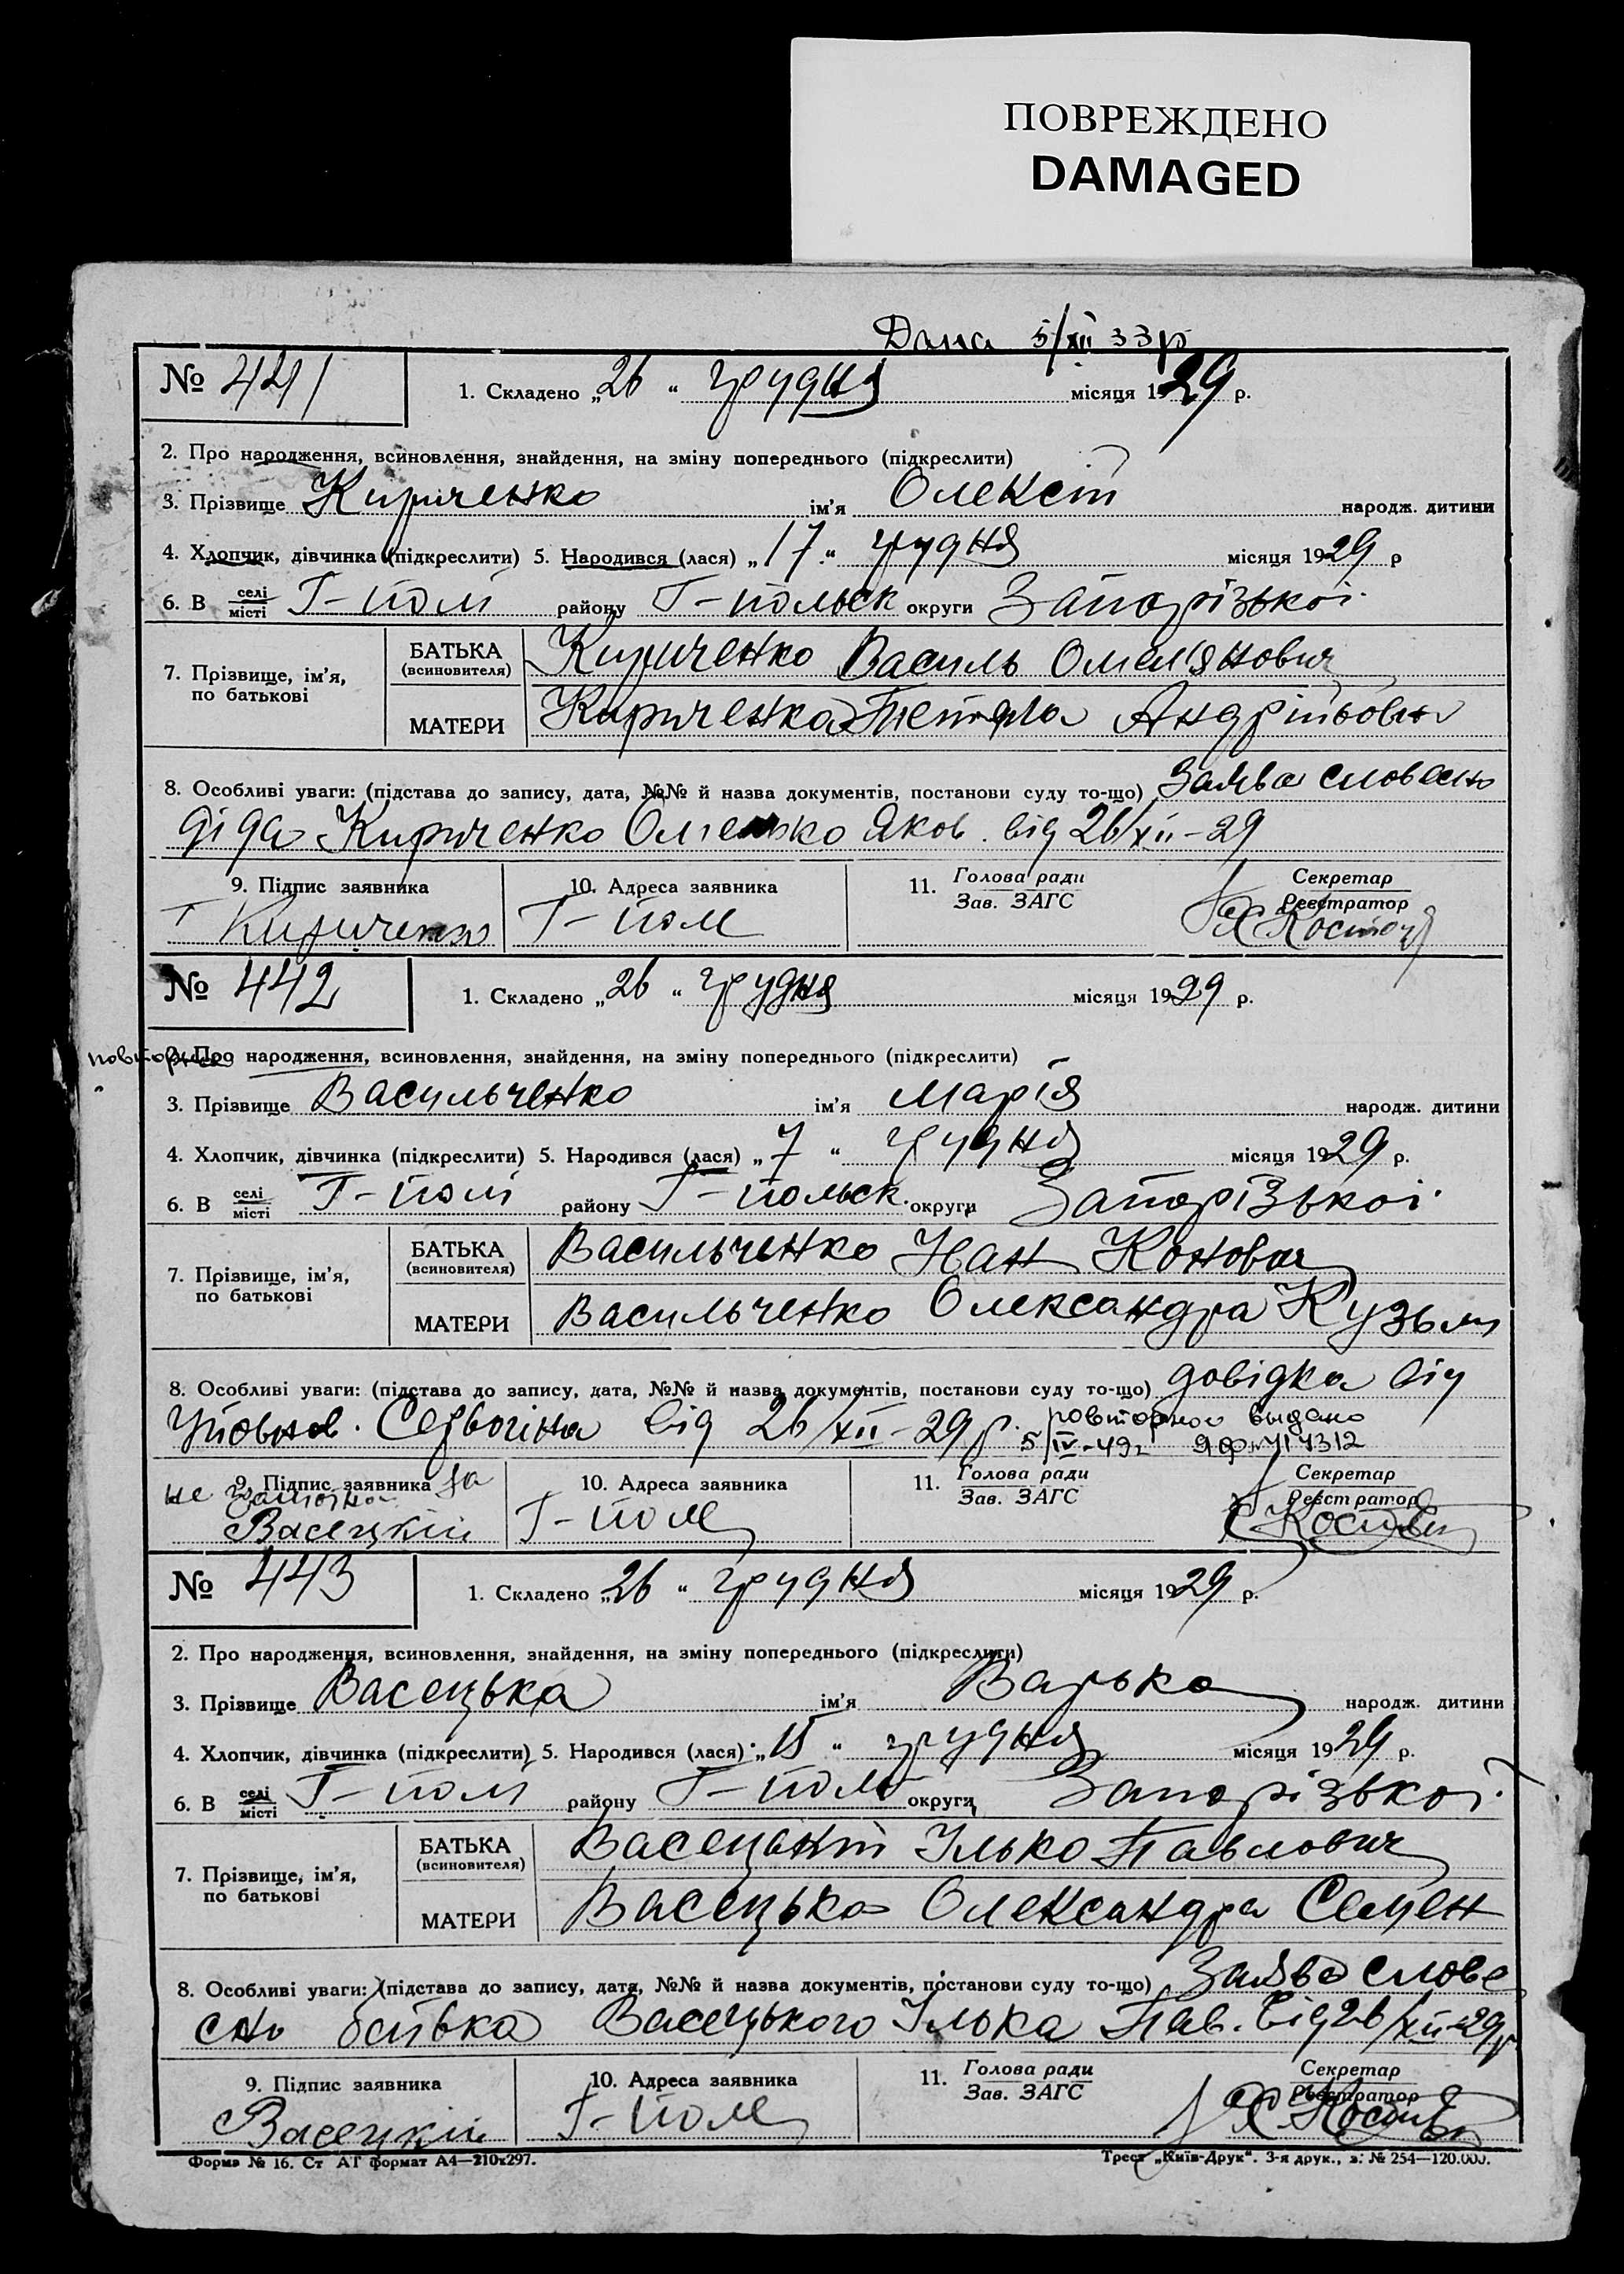 ПОВРЕЖДЕНО
DAMAGED
Дана 5/XII 33р
№ 441 1. Складено „26“ грудня місяця 1929 р.
2. Про народження, всиновлення, знайдення, на зміну попереднього (підкреслити)
3. Прізвище Кириченко ім’я Олексій народж. дитини
4. Хлопчик, дівчинка (підкреслити) 5. Народився (лася) „17“ грудня місяця 1929 р
6. В селі місті Г-полі району Г-польськ округи Запорізької
7. Прізвище, ім’я, по батькові
БАТЬКА (всиновителя) Кириченко Василь Омелянович
МАТЕРИ Кириченко Андріївна
8. Особливі уваги: (підстава до запису, дата, №№ й назва документів, постанови суду то-що) Заява словесно
діда Кириченко Омелько Яков. від 26/XII-29
9. Підпис заявника 10. Адреса заявника 11. Голова ради Зав. ЗАГС Секретар Реєстратор
Кириченко Г-поле
№ 442 1. Складено „26“ грудня місяця 1929 р.
повторно
2. Про народження, всиновлення, знайдення, на зміну попереднього (підкреслити)
3. Прізвище Васильченко ім’я Марія народж. дитини
4. Хлопчик, дівчинка (підкреслити) 5. Народився (лася) „7“ грудня місяця 1929 р.
6. В селі місті Г-полі району Г-польск. округи Запорізької
7. Прізвище, ім’я, по батькові
БАТЬКА (всиновителя) Васильченко Іван
МАТЕРИ Васильченко Олександра Кузьм
8. Особливі уваги: (підстава до запису, дата, №№ й назва документів, постанови суду то-що) довідка від
Уповнов. від 26/XII-29 р. повторное выдано
5/IV-49г
9. Підпис заявника 10. Адреса заявника 11. Голова ради Зав. ЗАГС Секретар Реєстратор
не за
Васецкий Г-поле
№ 443 1. Складено „26“ грудня місяця 1929 р.
2. Про народження, всиновлення, знайдення, на зміну попереднього (підкреслити)
3. Прізвище Васецька ім’я Варька народж. дитини
4. Хлопчик, дівчинка (підкреслити) 5. Народився (лася) „15“ грудня місяця 1929 р.
6. В селі місті Г-полі району Г-поль округи Запорізької
7. Прізвище, ім’я, по батькові
БАТЬКА (всиновителя) Васецький Ілько Павлович
МАТЕРИ Васецька Олександра Семен
8. Особливі уваги: (підстава до запису, дата, №№ й назва документів, постанови суду то-що) Заява слове
сно батька Васецького Ілька Пав. від 26/XII-29р
9. Підпис заявника 10. Адреса заявника 11. Голова ради Зав. ЗАГС Секретар Реєстратор
Васецкий Г-поле
Форма № 16. Ст АТ формат А4—210х297. Трест „Київ-Друк“. 3-я друк., з. № 254—120.000.